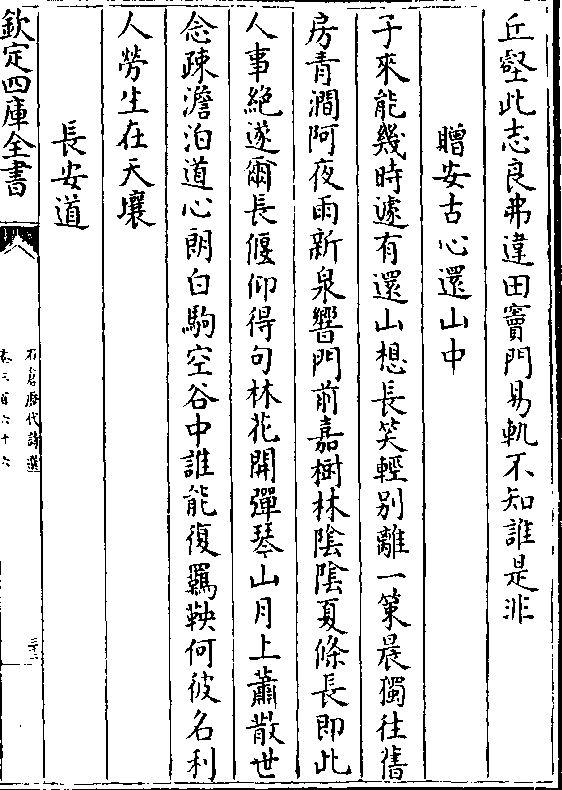 丘壑此志良弗違田竇門易軌不知誰是非
贈安古心還山中
子來能幾時遽有還山想長笑輕別離一策晨獨往舊
房青澗阿夜雨新泉響門前嘉樹林陰陰夏條長即此
人事絶遂爾長偃仰得句林花開彈琴山月上蕭散世
念疎澹泊道心朗白駒空谷中誰能復羈鞅何彼名利
人勞生在天壤
長安道
欽定四庫全書
石倉歷代詩選
卷三百六十六
三十二